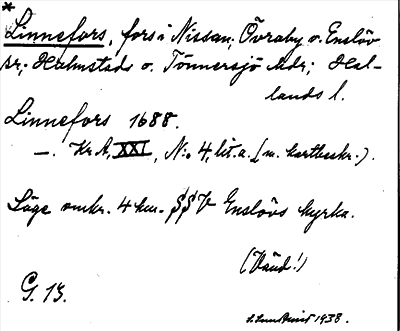 *
Linnefors, fors i Nissan; Övraby o. Enslöv
sr; Halmstads o. Tönnersjö hdr; Hal-
lands l.
Linnefors 1688.
—. Kr.A, XXI, N:o 4, lit. a. (m. kartbeskr.).
Läge omkr. 4 km. SSV Enslövs kyrka.
(Vänd!)
G. 13.
1938.